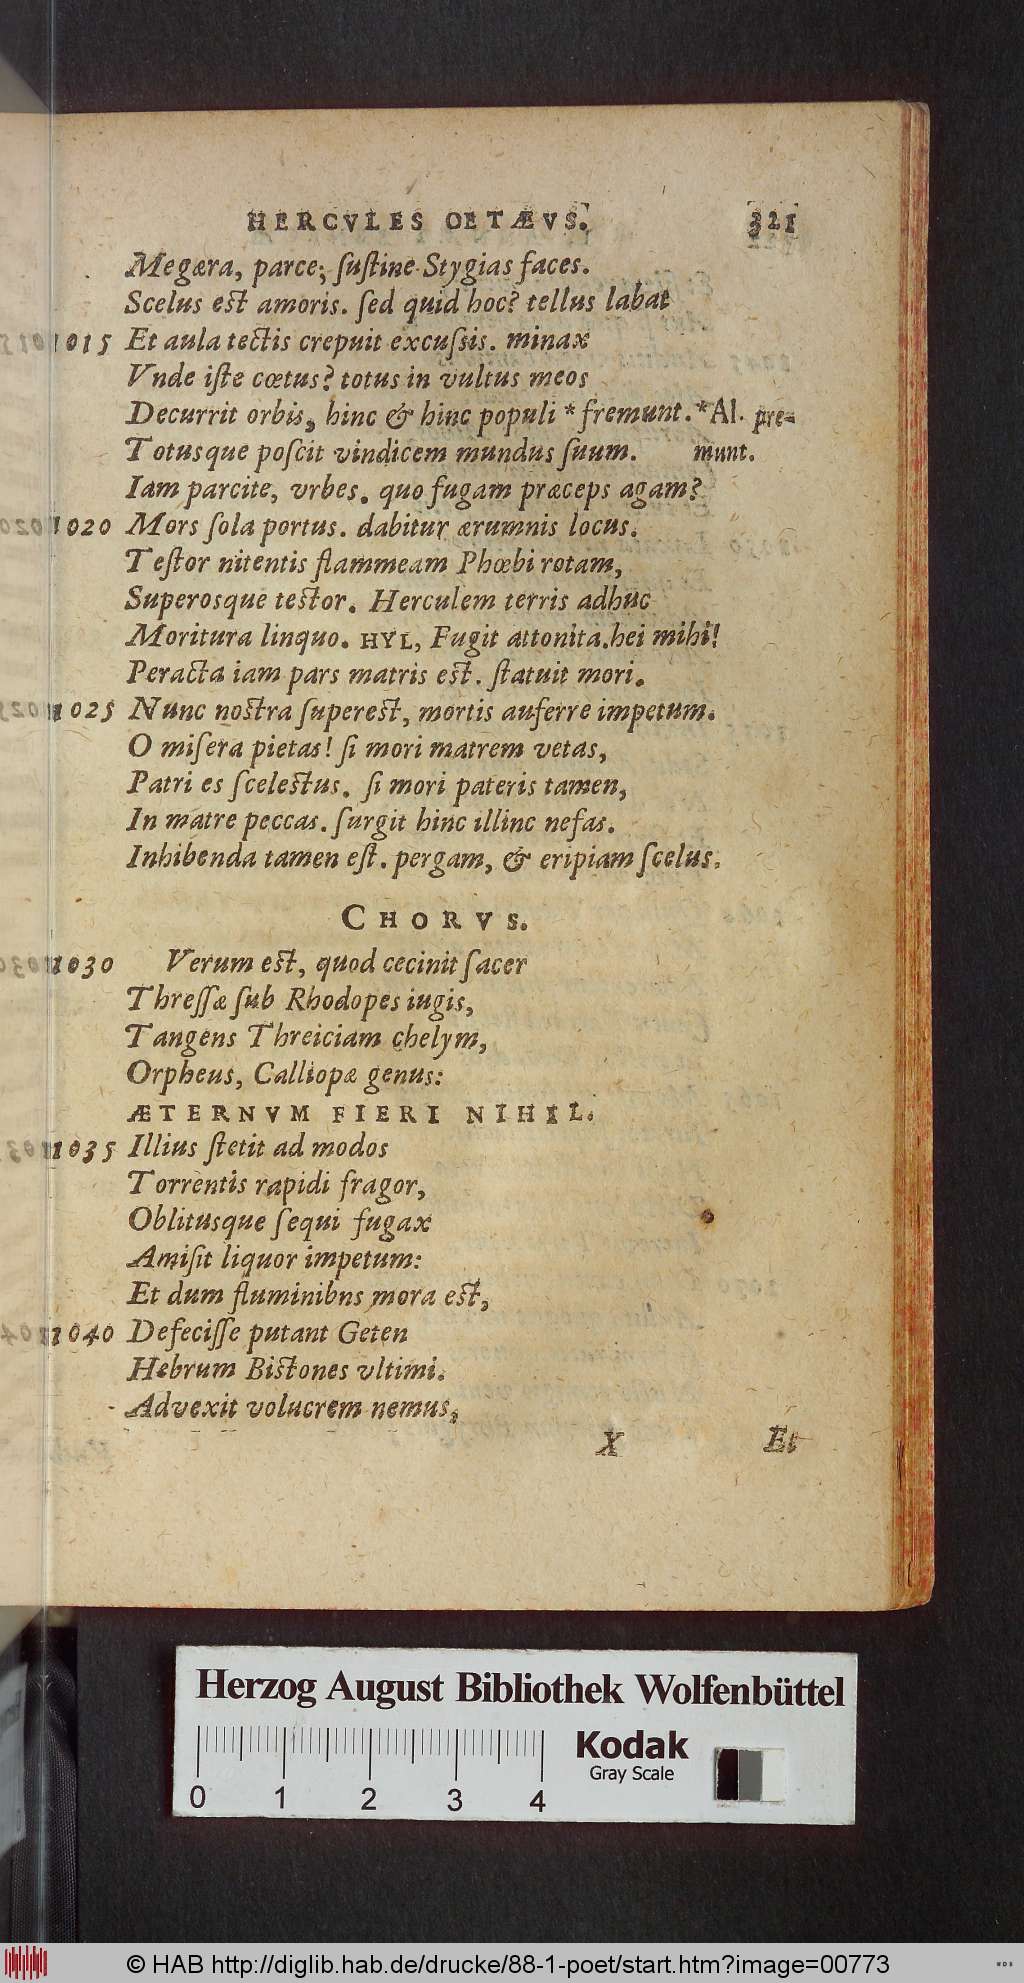 HERCVLES OETÆVS. 321
Megæra, parce; ſuſtine Stygias faces.
Scelus eſt amoris. ſed quid hoc? tellus labat
1015 Et aula tectis crepuit excuſsis. minax
Vnde iſte cœtus? totus in vultus meos
Decurrit orbis, hinc & hinc populi * fremunt. * Al. pre-
Totusque poſcit vindicem mundus ſuum. munt.
Iam parcite, vrbes. quo fugam præceps agam?
1020 Mors ſola portus. dabitur ærumnis locus.
Teſtor nitentis flammeam Phœbi rotam,
Superosque teſtor. Herculem terris adhuc
Moritura linquo. HYL, Fugit attonita. hei mihi!
Peracta iam pars matris eſt. ſtatuit mori.
1025 Nunc noſtra ſupereſt, mortis auferre impetum.
O miſera pietas! ſi mori matrem vetas,
Patri es ſceleſtus. ſi mori pateris tamen,
In matre peccas. ſurgit hinc illinc nefas.
Inhibenda tamen eſt. pergam, & eripiam ſcelus.
CHORVS.
1030 Verum eſt, quod cecinit ſacer
Threſſæ ſub Rhodopes iugis,
Tangens Threiciam chelym,
Orpheus, Calliopæ genus:
ÆTERNVM FIERI NIHIL.
1035 Illius ſtetit ad modos
Torrentis rapidi fragor,
Oblitusque ſequi fugax
Amiſit liquor impetum:
Et dum fluminibns mora eſt,
1040 Defeciſſe putant Geten
Hebrum Biſtones vltimi.
Advexit volucrem nemus,
X Et
Herzog August Bibliothek Wolfenbüttel
Kodak
Gray Scale
0 1 2 3 4
© HAB http://diglib.hab.de/drucke/88-1-poet/start.htm?image=00773